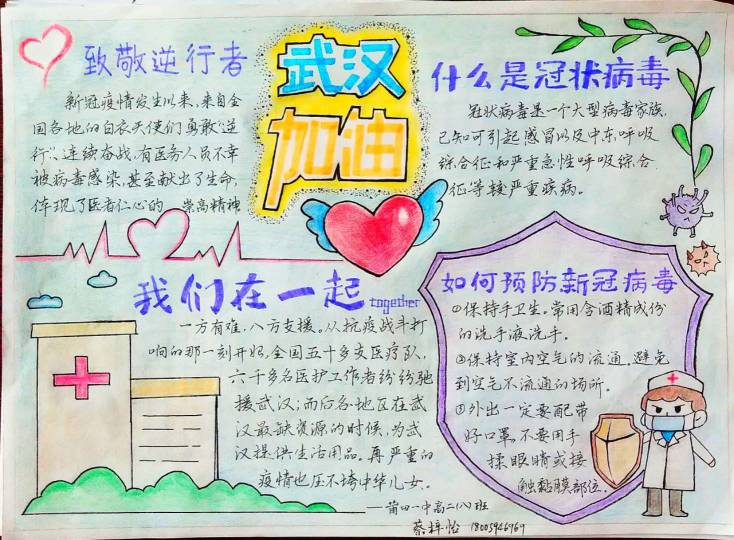 致敬逆行者
新冠疫情发生以来,来自全
国各地的白衣天使们勇敢“逆
行”、连续奋战,有医务人员不幸
被病毒感染,甚至献出了生命,
体现了医者仁心的 崇高精神
武汉
加油
什么是冠状病毒
冠状病毒是一个大型病毒家族,
已知可引起感冒以及中东呼吸
综合征和严重急性呼吸综合
征等较严重疾病。
我们在一起
together
一方有难,八方支援。从抗疫战斗打
响的那一刻开始,全国五十多支医疗队,
六千多名医护工作者纷纷驰
援武汉;而后各地区在武
汉最缺资源的时候,为武
汉提供生活用品。再严重的
疫情也压不垮中华儿女。
如何预防新冠病毒
①保持手卫生。常用含酒精成份
的洗手液洗手。
②保持室内空气的流通。避免
到空气不流通的场所。
③外出一定要配带
好口罩。不要用手
揉眼睛或接
触黏膜部位。
——莆田一中高二(八)班
蔡梓怡 18005946969